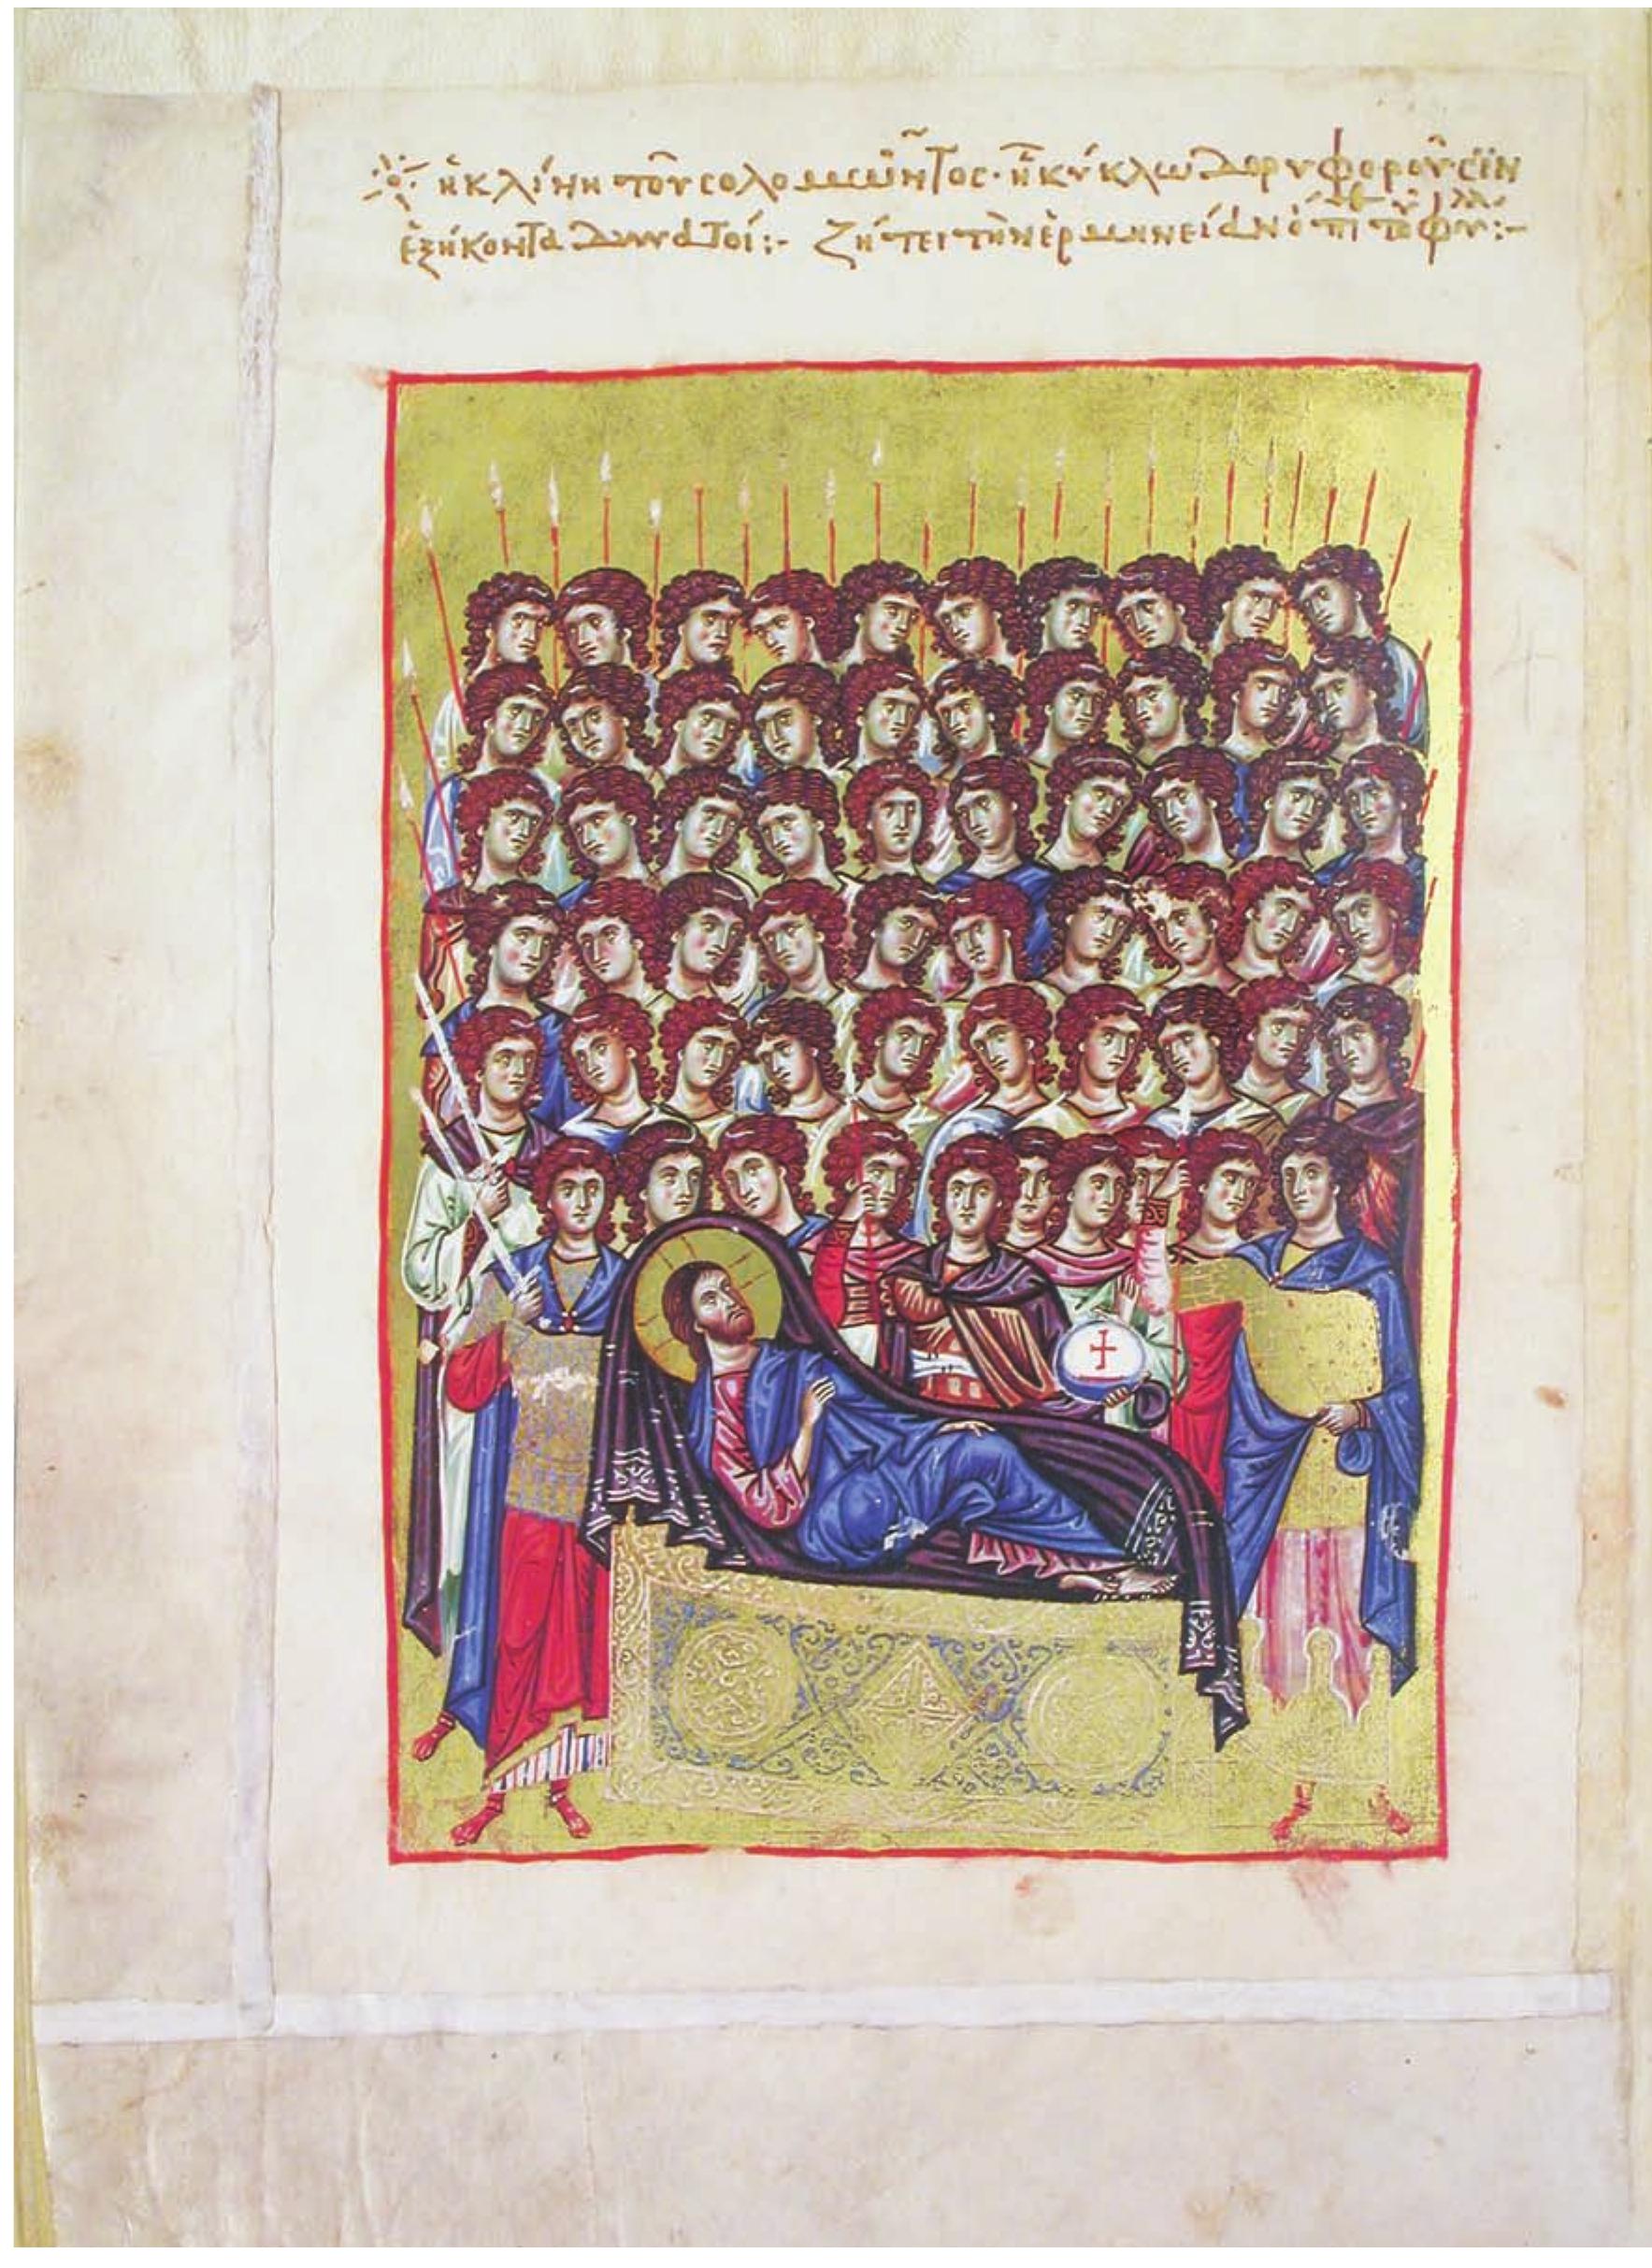 ἡ κλίνη τοῦ σολομῶντος· ἣν κύκλω δορυφοροῦσϊν
ἑξήκοντα δυνατοί :- ζήτει τὴν ἑρμηνείαν